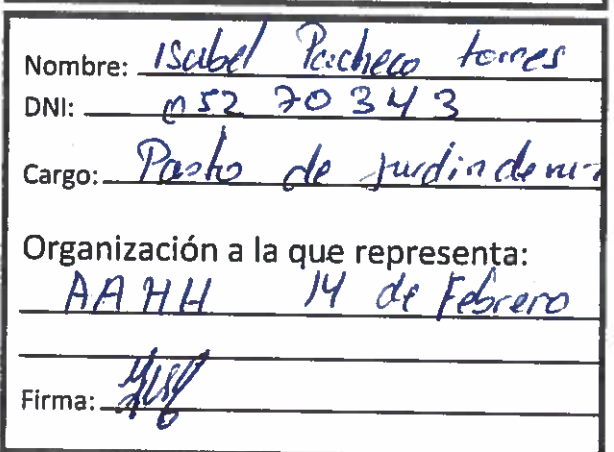 Nombre: Isabel Pacheco torres
DNI: 052 70 343
Cargo: Pasto de
Organización a la que representa:
AAHH 14 de Febrero
Firma: